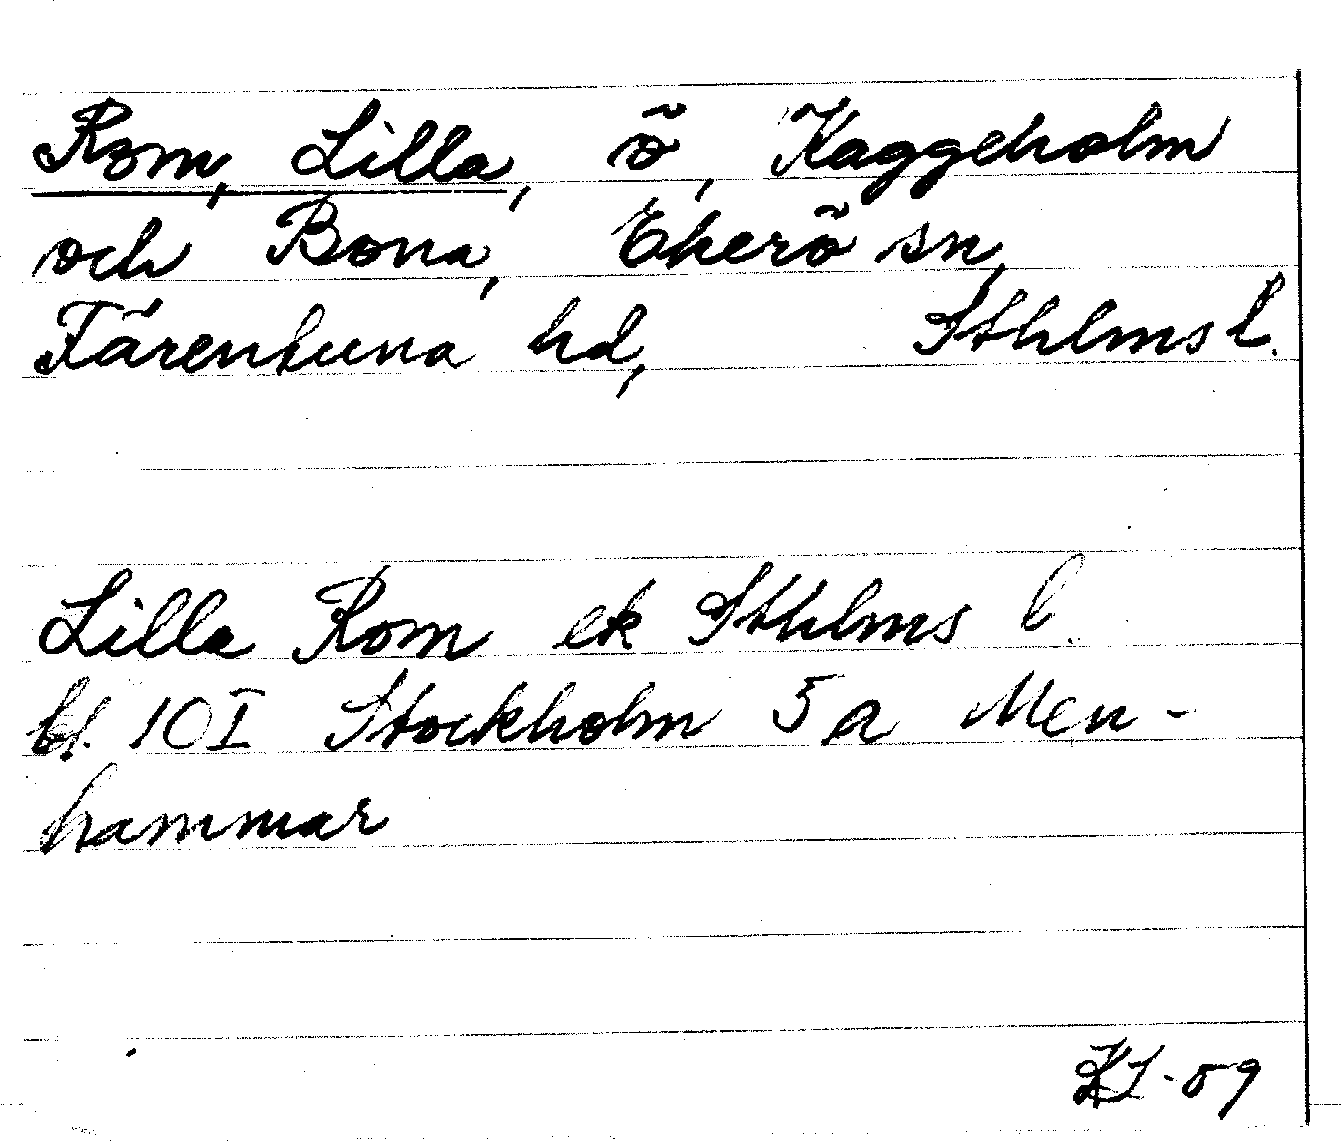 Rom, Lilla, ö, Kaggeholm
och Bona, Ekerö sn,
Färentuna hd, Sthlms l.
Lilla Rom ek Sthlms l.
bl. 10I Stockholm 5a Men-
hammar